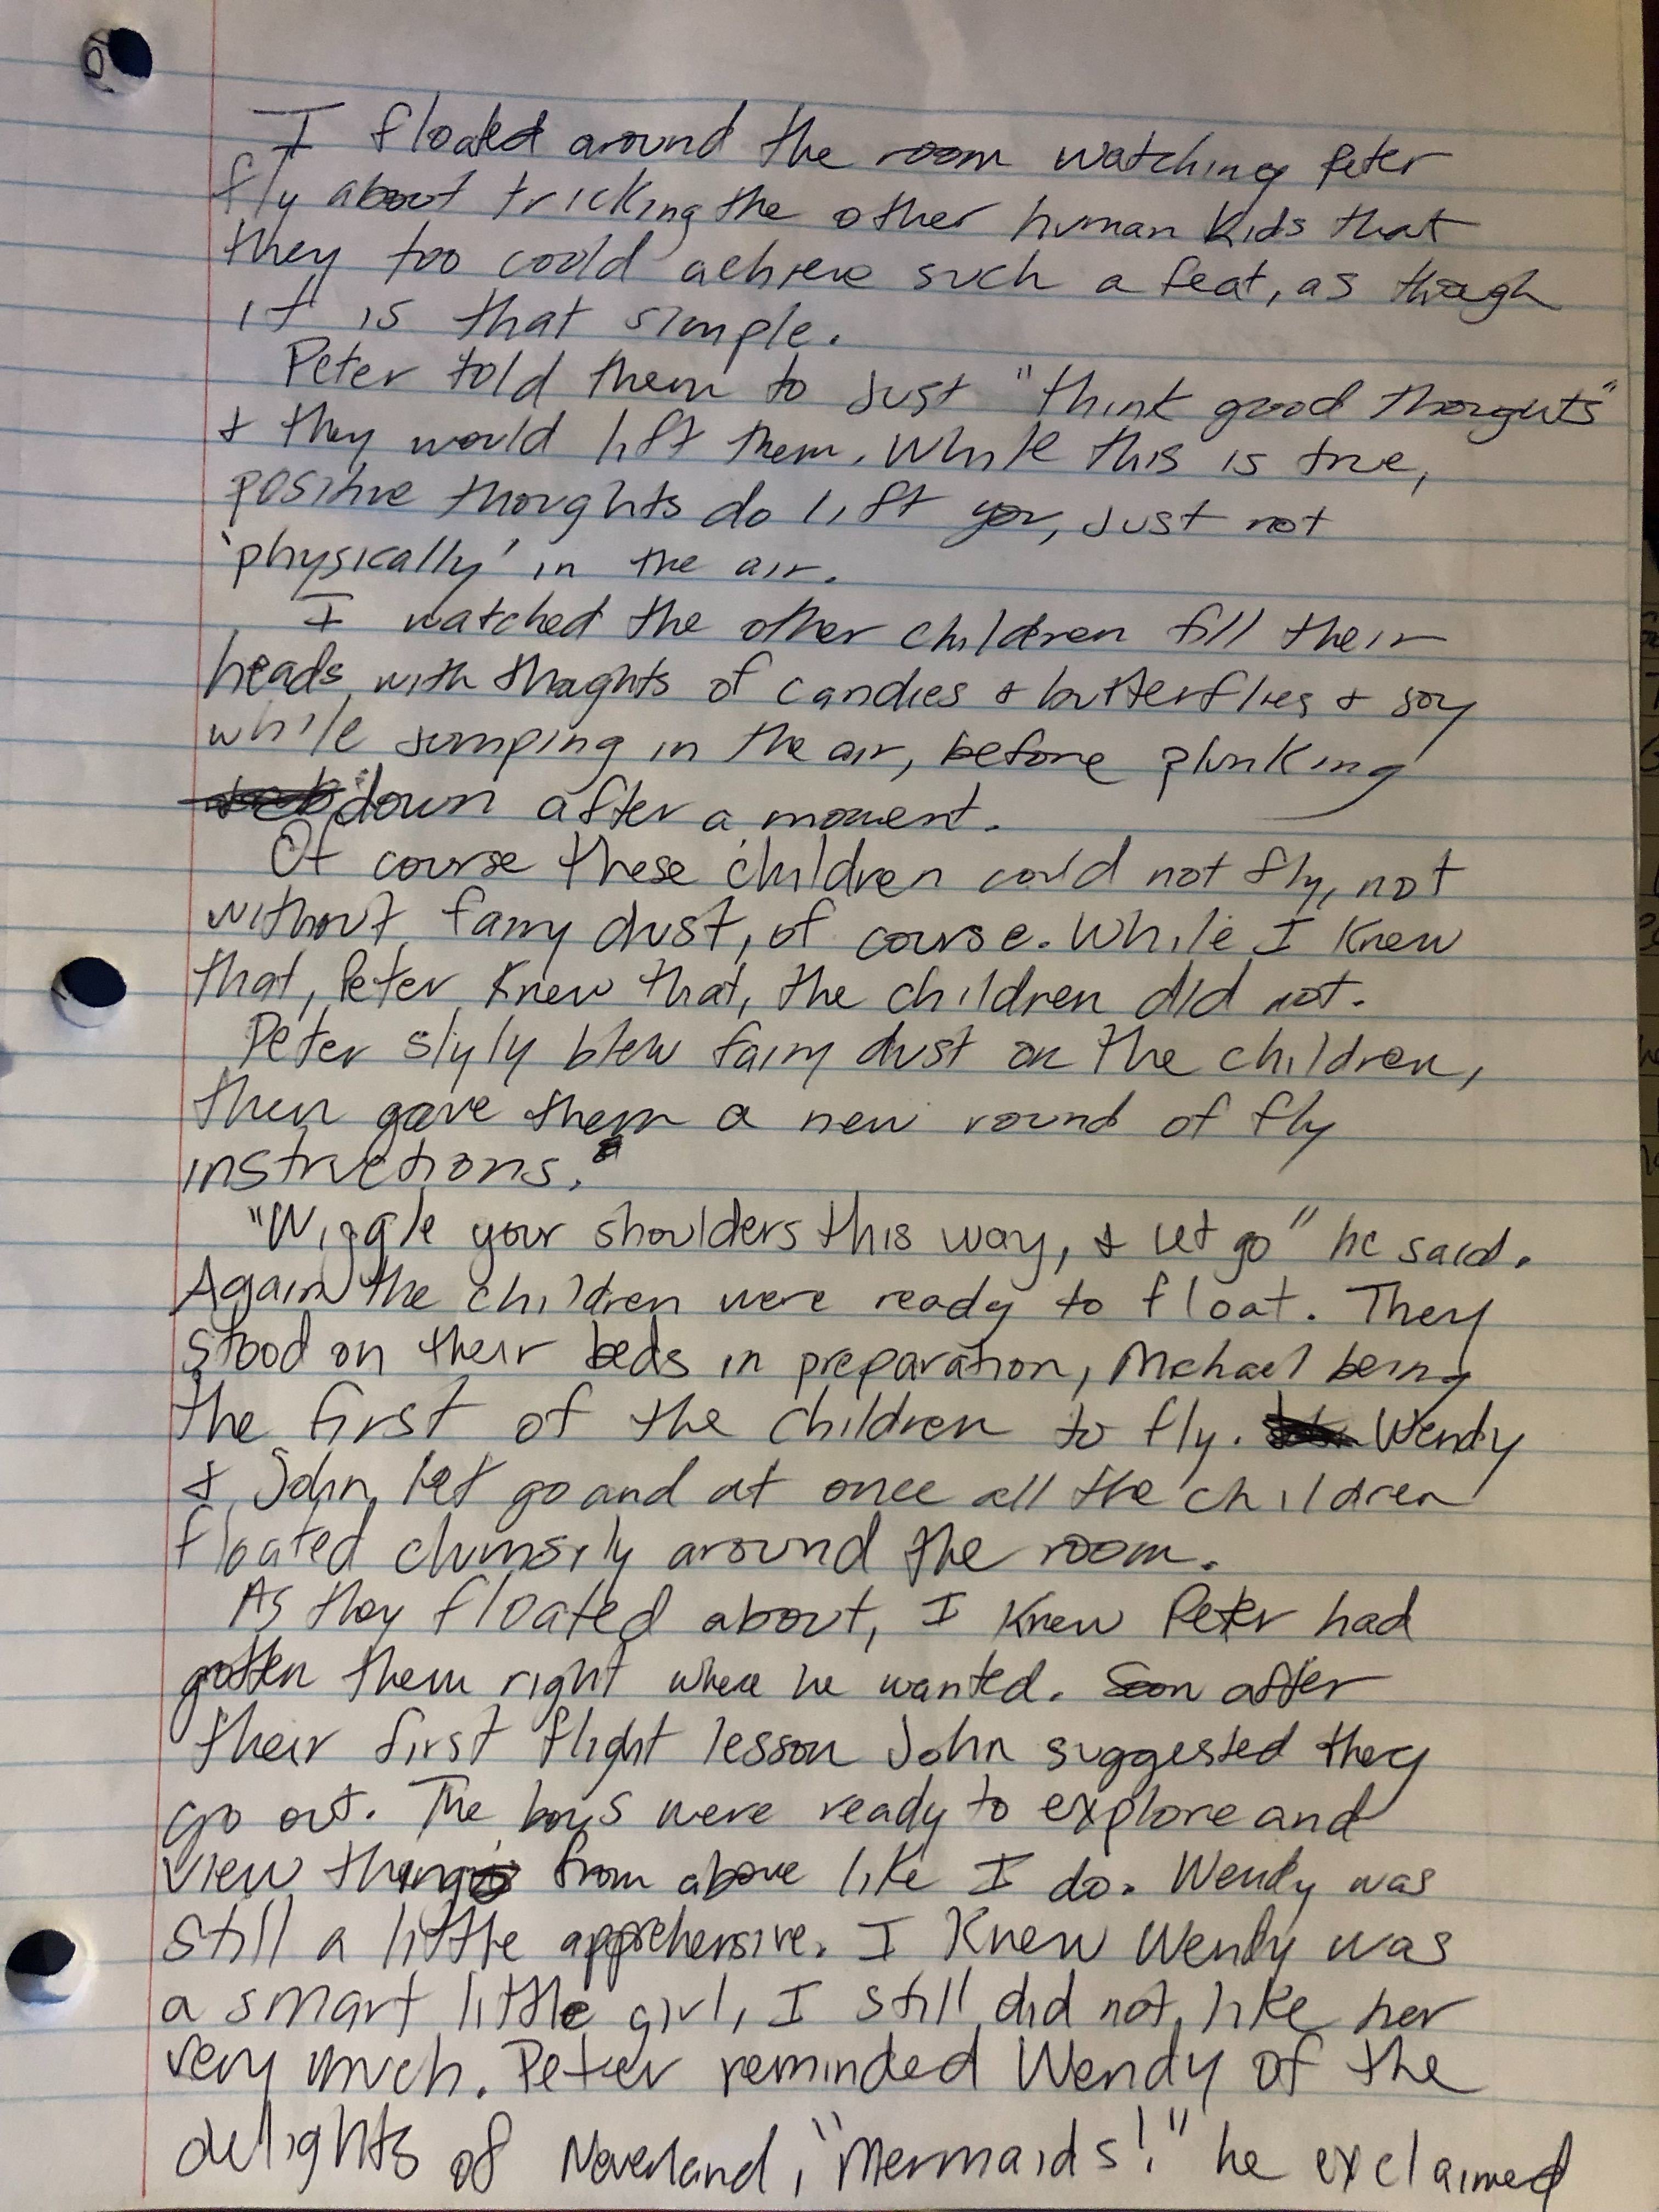 I floated around the room watching Peter
fly about tricking the other human kids that
they too could achieve such a feat, as though
it is that simple.
Peter told them to just "think good thoughts"
& they would lift them. While this is true,
positive thoughts do lift you, just not
'physically' in the air.
I watched the other children fill their
heads with thoughts of candies & butterflies & joy
while jumping in the air, before plunking
down after a moment.
Of course these children could not fly, not
without fairy dust, of course. While I knew
that, Peter knew that, the children did not.
Peter slyly blew fairy dust on the children,
then gave them a new round of fly
instructions.
"Wiggle your shoulders this way, & let go" he said.
Again the children were ready to float. They
stood on their beds in preparation, Michael being
the first of the children to fly. Wendy
& John let go and at once all the children
floated clumsily around the room.
As they floated about, I knew Peter had
gotten them right where he wanted. Soon after
their first flight lesson John suggested they
go out. The boys were ready to explore and
view things from above like I do. Wendy was
still a little apprehensive. I knew Wendy was
a smart little girl, I still did not like her
very much. Peter reminded Wendy of the
delights of Neverland, "Mermaids!" he exclaimed